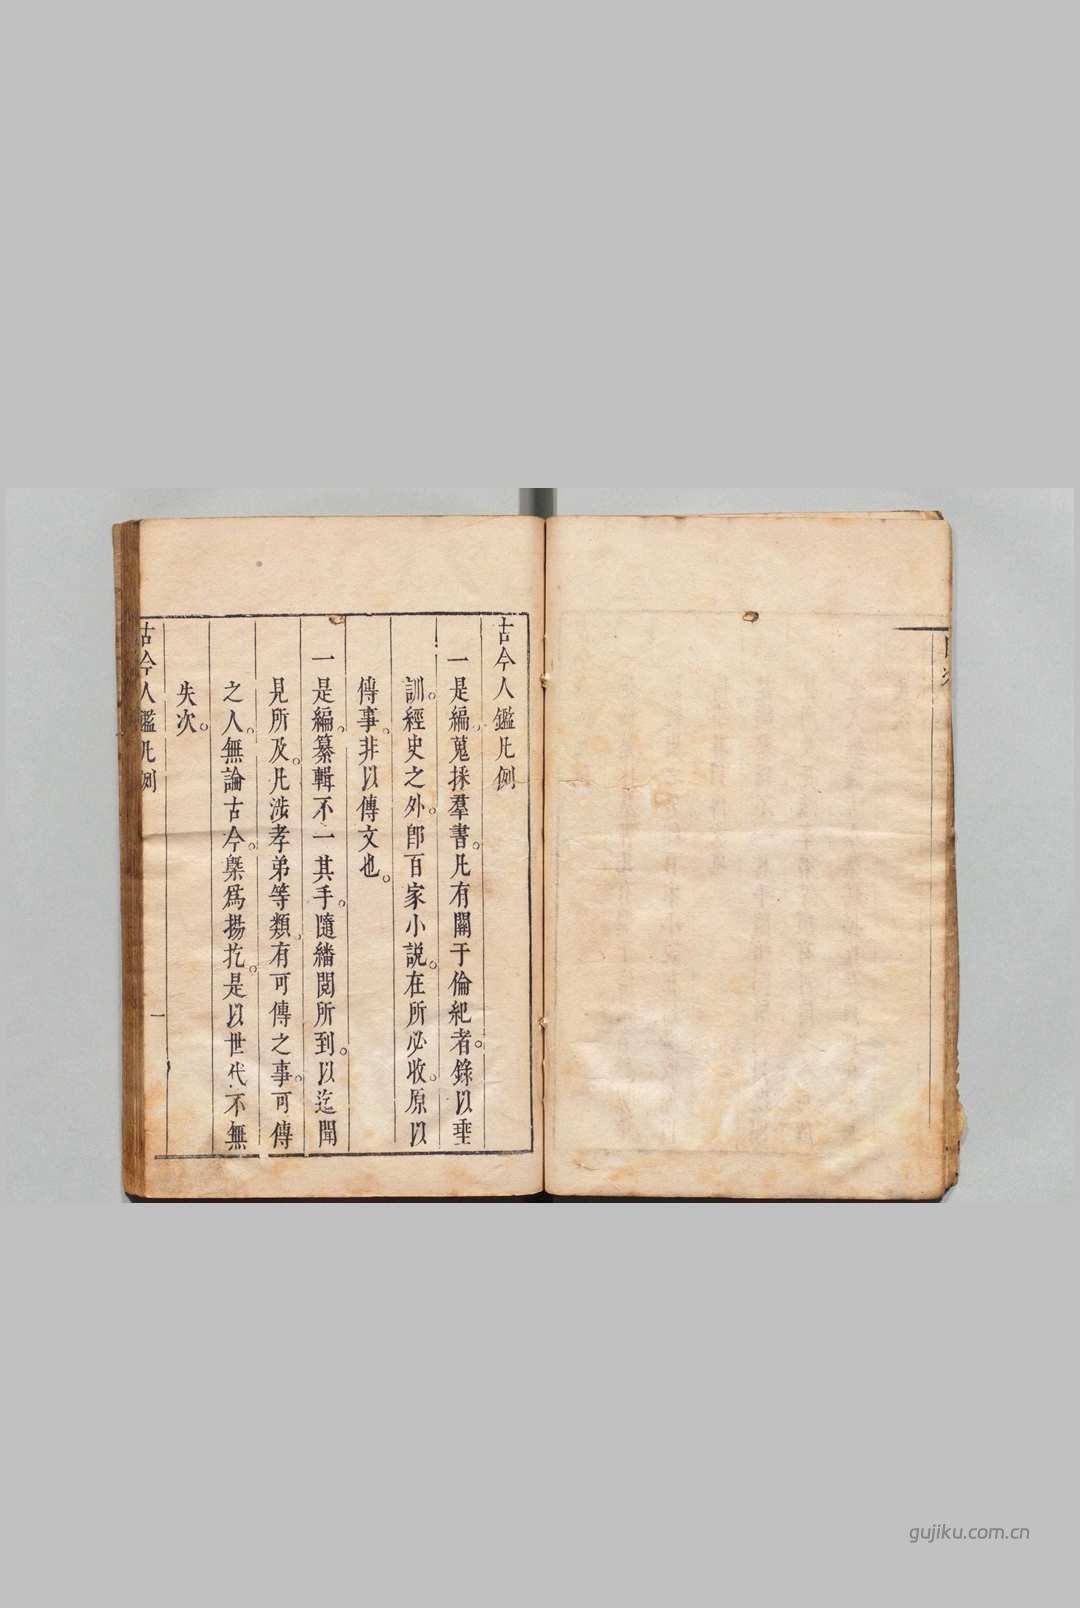 古今人鑑凡例
一是編蒐採羣書。凡有關于倫紀者。錄以垂
訓。經史之外。卽百家小說。在所必收。原以
傳事。非以傳文也。
一是編。纂輯不一其手。隨繙閱所到。以迄聞
見所及。凡涉孝弟等類。有可傳之事。可傳
之人。無論古今。槩爲揚扢。是以世代不無
失次。
古今人鑑凡例
一
gujiku.com.cn